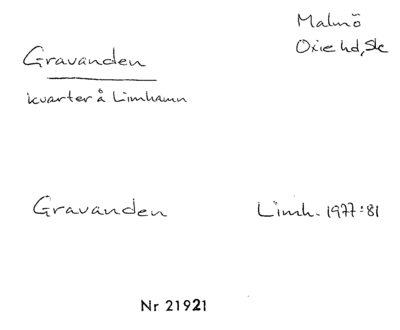 Malmö
Oxie hd, Sk
Gravanden
kvarter å Limhamn
Gravanden
Limh. 1977:81
Nr 21921